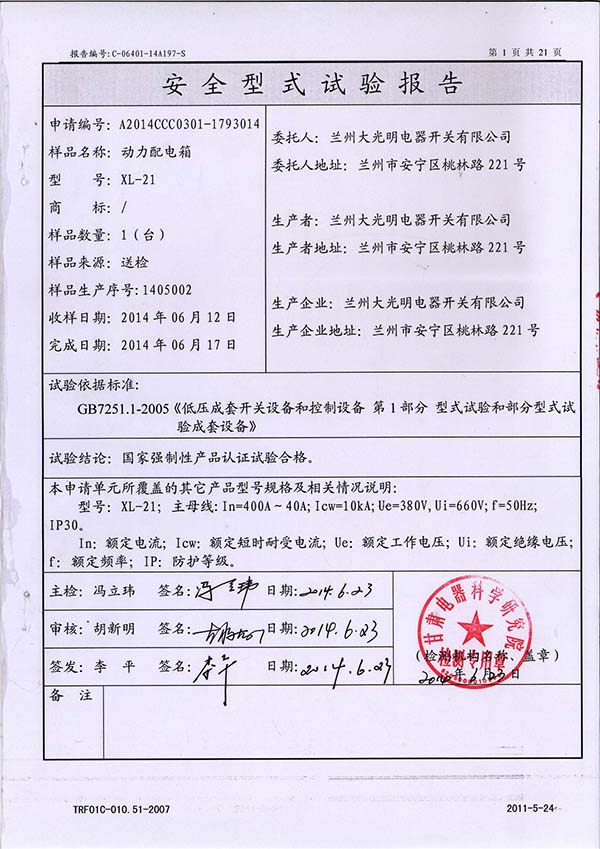 报告编号:C-06401-14A197-S
第 1 页 共 21 页
安全型式试验报告
申请编号: A2014CCC0301-1793014
样品名称: 动力配电箱
型 号: XL-21
商 标: /
样品数量: 1（台）
样品来源: 送检
样品生产序号:1405002
收样日期: 2014 年 06 月 12 日
完成日期: 2014 年 06 月 17 日
委托人: 兰州大光明电器开关有限公司
委托人地址: 兰州市安宁区桃林路 221 号
生产者: 兰州大光明电器开关有限公司
生产者地址: 兰州市安宁区桃林路 221 号
生产企业: 兰州大光明电器开关有限公司
生产企业地址: 兰州市安宁区桃林路 221 号
试验依据标准:
GB7251.1-2005《低压成套开关设备和控制设备 第 1 部分 型式试验和部分型式试
验成套设备》
试验结论: 国家强制性产品认证试验合格。
本申请单元所覆盖的其它产品型号规格及相关情况说明:
型号: XL-21; 主母线: In=400A～40A; Icw=10kA; Ue=380V, Ui=660V; f=50Hz;
IP30。
In: 额定电流; Icw: 额定短时耐受电流; Ue: 额定工作电压; Ui: 额定绝缘电压;
f: 额定频率; IP: 防护等级。
主检: 冯立玮 签名: 冯立玮 日期: 2014.6.23
审核: 胡新明 签名: 日期: 2014.6.23
签发: 李 平 签名: 李平 日期: 2014.6.23
甘肃电器科学研究院
检测专用章
(检测机构名称、盖章)
2014年6月23日
备 注
TRF01C-010.51-2007
2011-5-24